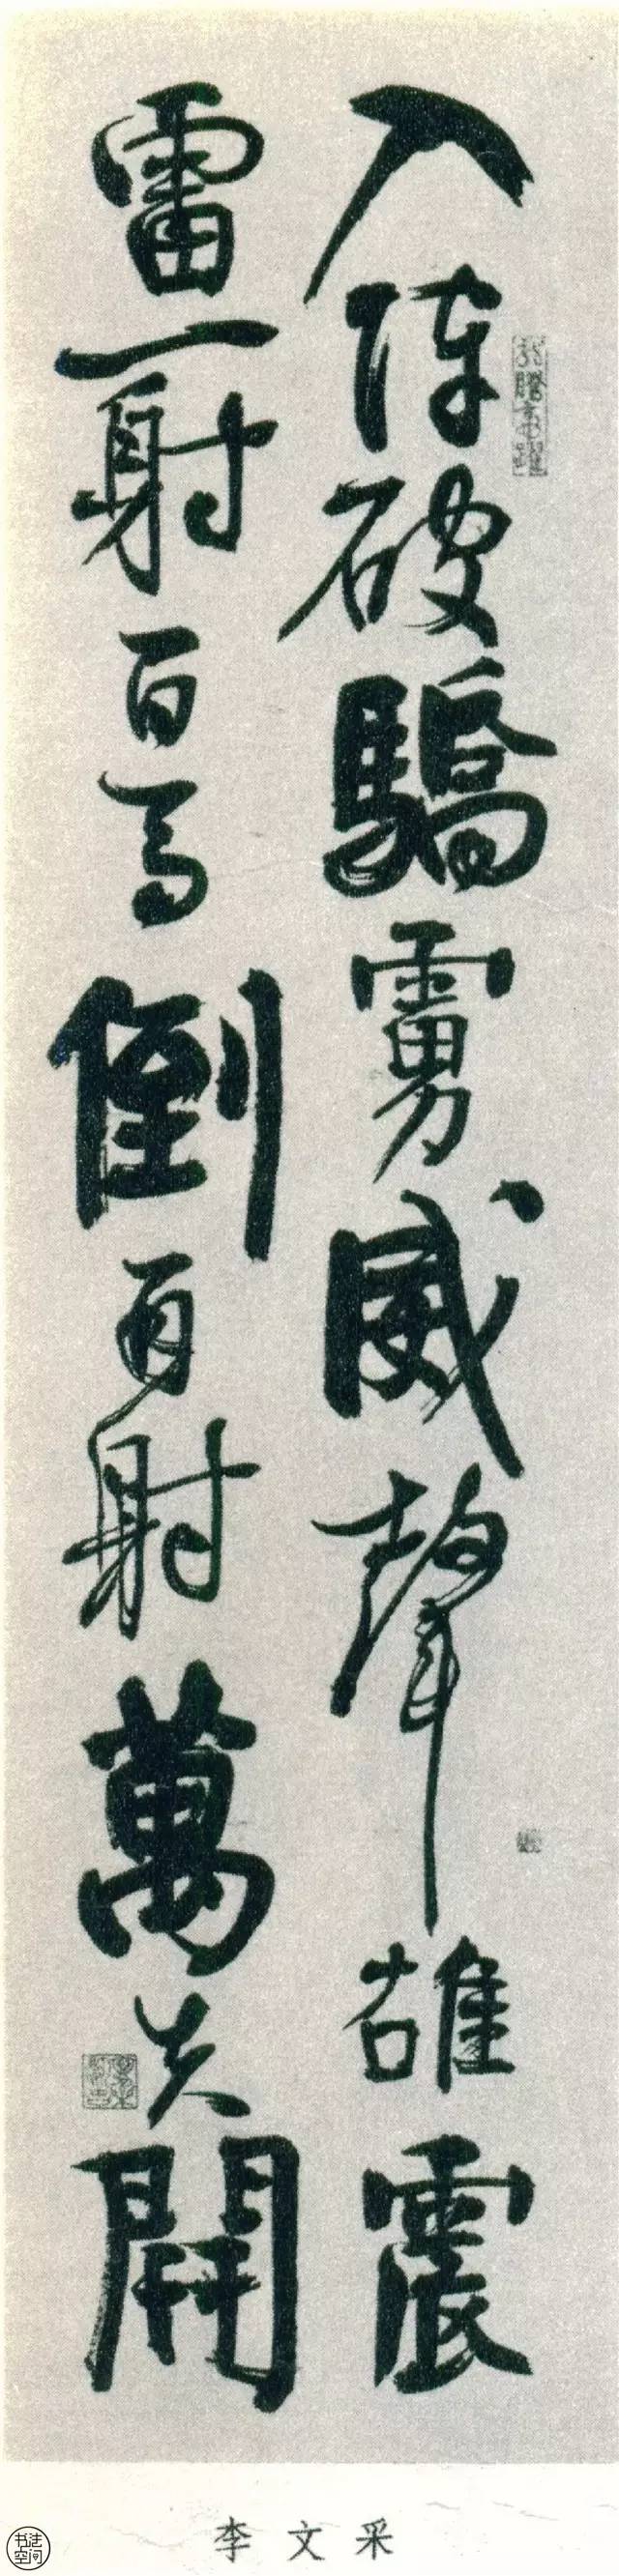 入阵破驕虜威聲雄震
雷一射百馬倒再射萬夫開
李文采
书法空间